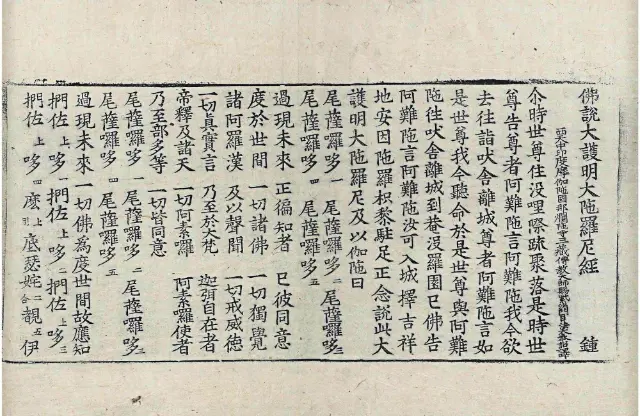 佛說大護明大陁羅尼經 鍾
西天中印度摩伽陁國那爛陁寺三藏傳教大師賜紫沙門臣法天奉詔譯
尒時世尊住没哩際疏聚落是時世
尊告尊者阿難陁言阿難陁我今欲
去往詣吠舍離城尊者阿難陁言如
是世尊我今聽命於是世尊與阿難
陁往吠舍離城到菴没羅園已佛告
阿難陁言阿難陁汝可入城擇吉祥
地安因陁羅枳黎駐足正念說此大
護明大陁羅尼及以伽陁曰
尾薩囉哆一 尾薩囉哆二 尾薩囉哆三
尾薩囉哆四 尾薩囉哆五
過現未來 正徧知者 已彼同意
度於世間 一切諸佛 一切獨覺
諸阿羅漢 及以聲聞 一切戒威德
一切真實言 乃至於大梵 迦弭自在者
帝釋及諸天 一切阿素羅 阿素羅使者
乃至部多等 一切皆同意
尾薩囉哆一 尾薩囉哆二 尾薩囉哆三
尾薩囉哆四 尾薩囉哆五
過現未來 一切佛為度世間故應知
捫佐上哆一 捫佐上哆二 捫佐上哆三
捫佐上哆四 麽上引底瑟姹二合 覩五 伊